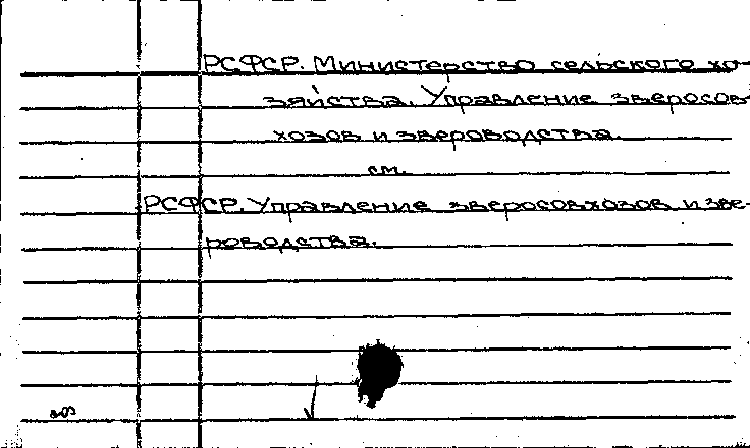 РСФСР. Министерство сельского хо-
зяйства. Управление зверосов-
хозов и звероводства.
см.
РСФСР. Управление зверосовхозов и зве-
роводства.